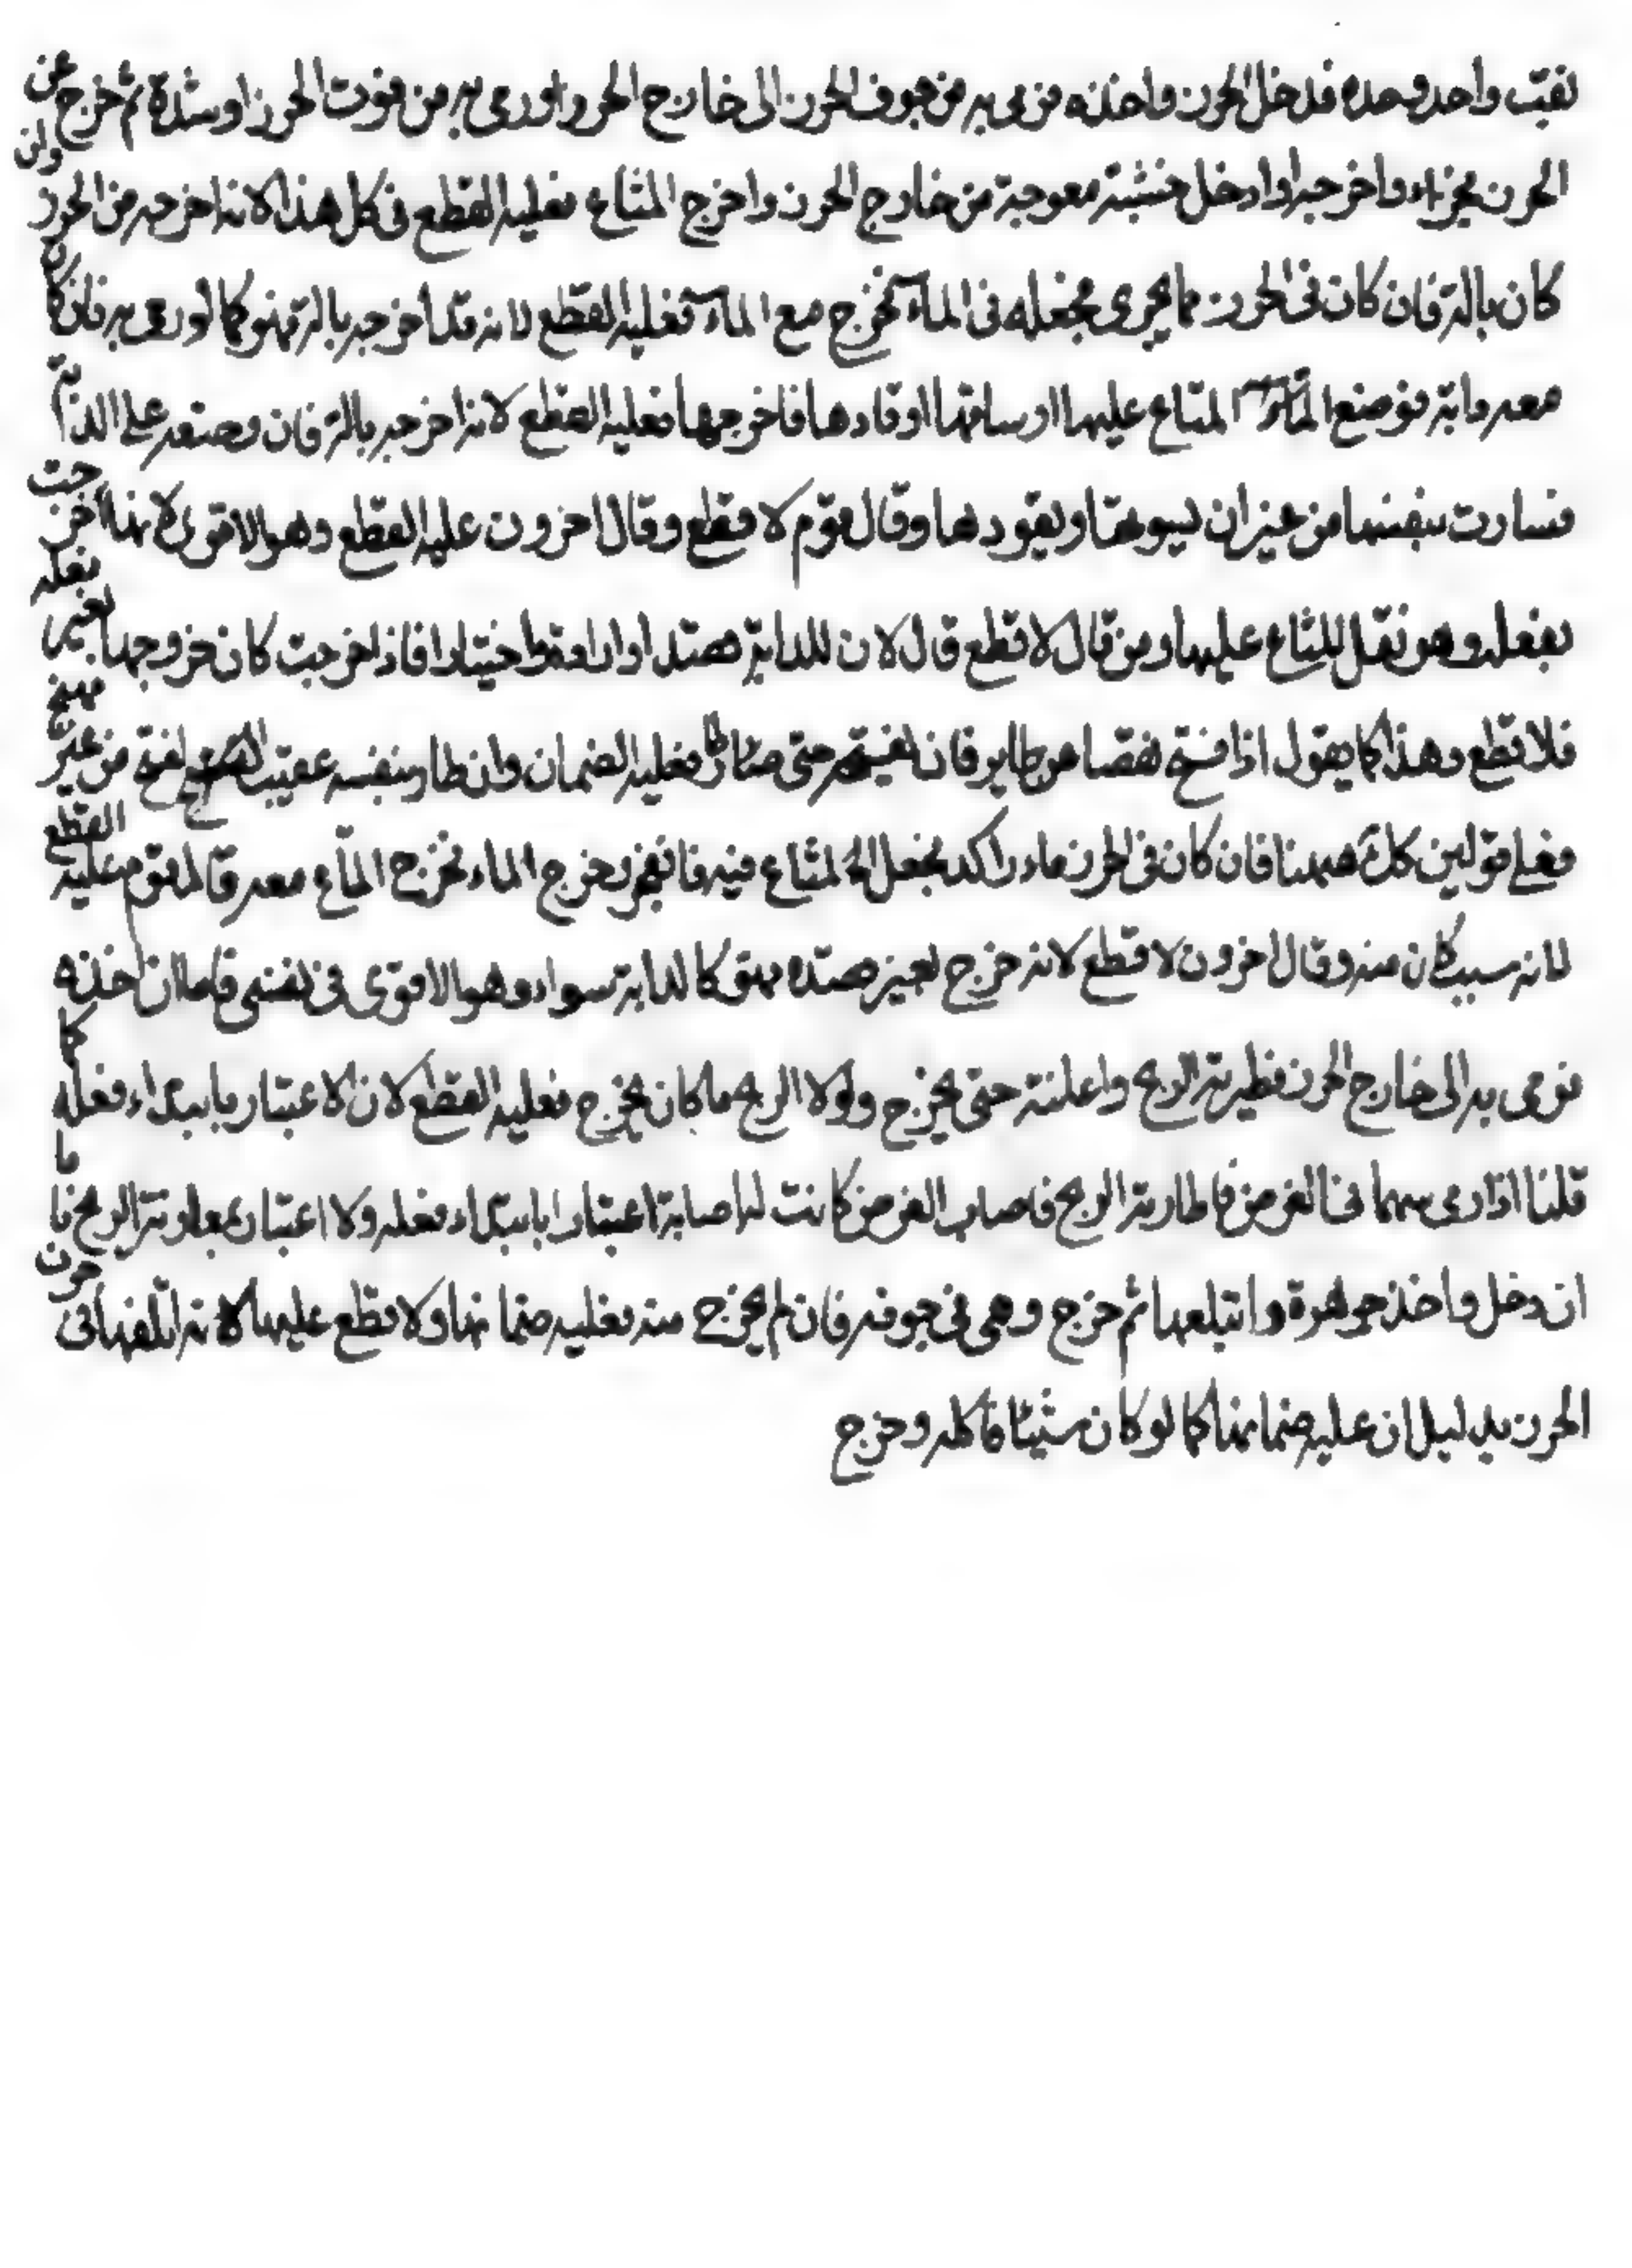 نقب واحد وحده فدخل الحرز واخذه فرمى به من جوف الحرز الى خارج الحرز او رمى به من فوت الحرز او شده ثم خرج عن
الحرز يجزاء واخرجه او ادخل خشبة معوجة من خارج الحرز واخرج المتاع فعليه القطع فى كل هذا لانه اخرجه من الحرز وان
كان بالة فان كان فى الحرز مما يجرى فجعله فى الماء فخرج مع الماء فعليه القطع لانه قد اخرجه بالة فهو كما لو رمى به فان كان
معه دابة فوضع المتاع عليها او ساقها او قادها فاخرجها فعليه القطع لانه اخرجه بالة فان وضعه على الدابة
فسارت بنفسها من غير ان يسوقها او يقودها وقال قوم لا قطع وقال اخرون عليه القطع وهو الاقوى لانها اخرجت
بفعله وهو نقل المتاع عليها ومن قال لا قطع قال لان للدابة قصدا وارادة واختيارا فاذا خرجت كان خروجها بغير فعله
فلا قطع وهذا كما يقول اذا فتح قفصا عن طاير فان هيجه حتى طار فعليه الضمان وان طار بنفسه عقيب الفتح من غير تهييج
فعلى قولين كك ههنا فان كان فى الحرز ماء راكد فجعل المتاع فيه فانفجر فخرج الماء فخرج المتاع معه قال قوم عليه القطع
لانه سبب كان منه وقال اخرون لا قطع لانه خرج بغير قصده فهو كالدابة سواء وهو الاقوى فى نفسى فاما ان اخذه
فرمى به الى خارج الحرز فطيرته الريح واعانته حتى يخرج ولولا الريح ما كان يخرج فعليه القطع لان الاعتبار بابتداء فعله كما
قلنا اذا رمى سهما فى الغرض فاطارته الريح فاصاب الغرض كانت له اصابة اعتبارا بابتداء فعله ولا اعتبار بمعاونة الريح فاما
ان دخل واخذ جوهرة وابتلعها ثم خرج وهى فى جوفه فان لم يخرج منه فعليه ضمانها ولا قطع عليها لانه اتلفها فى جوف
الحرز بدليل ان عليه ضمانها كما لو كان شيئا فاكله وخرج